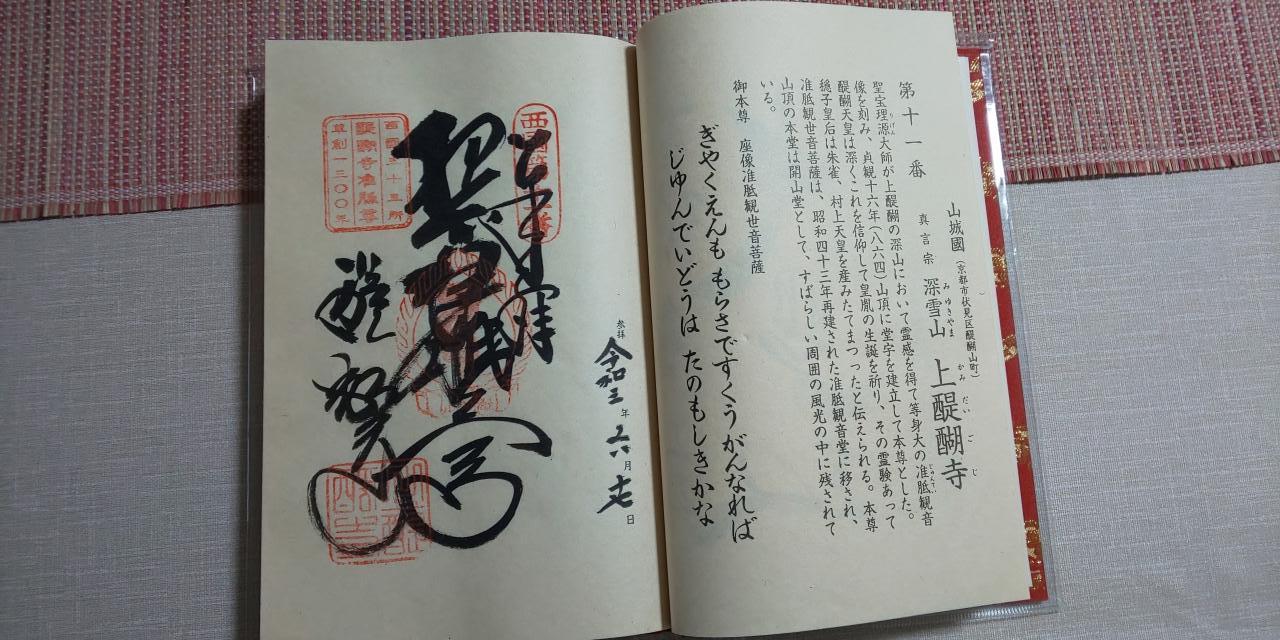 第十一番
山城國(京都市伏見区醍醐山町)
真言宗 深雪山 上醍醐寺
みゆきやま
かみだいごじ
聖宝理源大師が上醍醐の深山において霊感を得て等身大の准胝観音
りげん
じゅんてい
像を刻み、貞観十六年(八六四)山頂に堂宇を建立して本尊とした。
醍醐天皇は深くこれを信仰して皇胤の生誕を祈り、その霊験あって
穏子皇后は朱雀、村上天皇を産みたてまつったと伝えられる。本尊
准胝観世音菩薩は、昭和四十三年再建された准胝観音堂に移され、
山頂の本堂は開山堂として、すばらしい周囲の風光の中に残されて
いる。
御本尊 座像准胝観世音菩薩
ぎやくえんも もらさですくう がんなれば
じゆんでいどうは たのもしきかな
参拝 令和三年 六月 七日
西国三十三所
醍醐寺准胝尊
草創一三〇〇年
醍醐寺